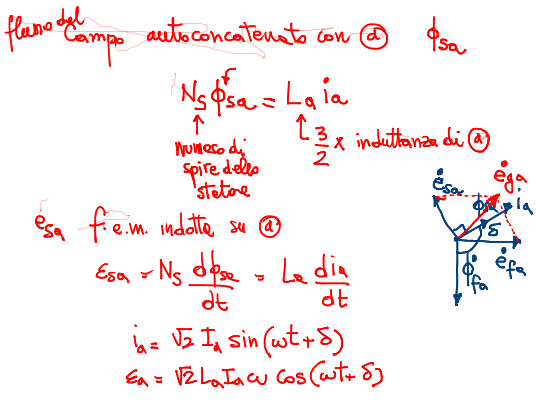 flusso del campo autoconcatenato con ⓐ ϕsa
Ns ϕsa = La ia
numero di spire dello statore
3/2 × induttanza di ⓐ
esa f.e.m. indotta su ⓐ
εsa = Ns dϕsa/dt = La dia/dt
ia = √2 Ia sin(ωt+δ)
εa = √2 La Ia ω cos(ωt+δ)
ėsa
ėga
ϕ̇sa
i̇a
δ
ϕ̇fa
ėfa